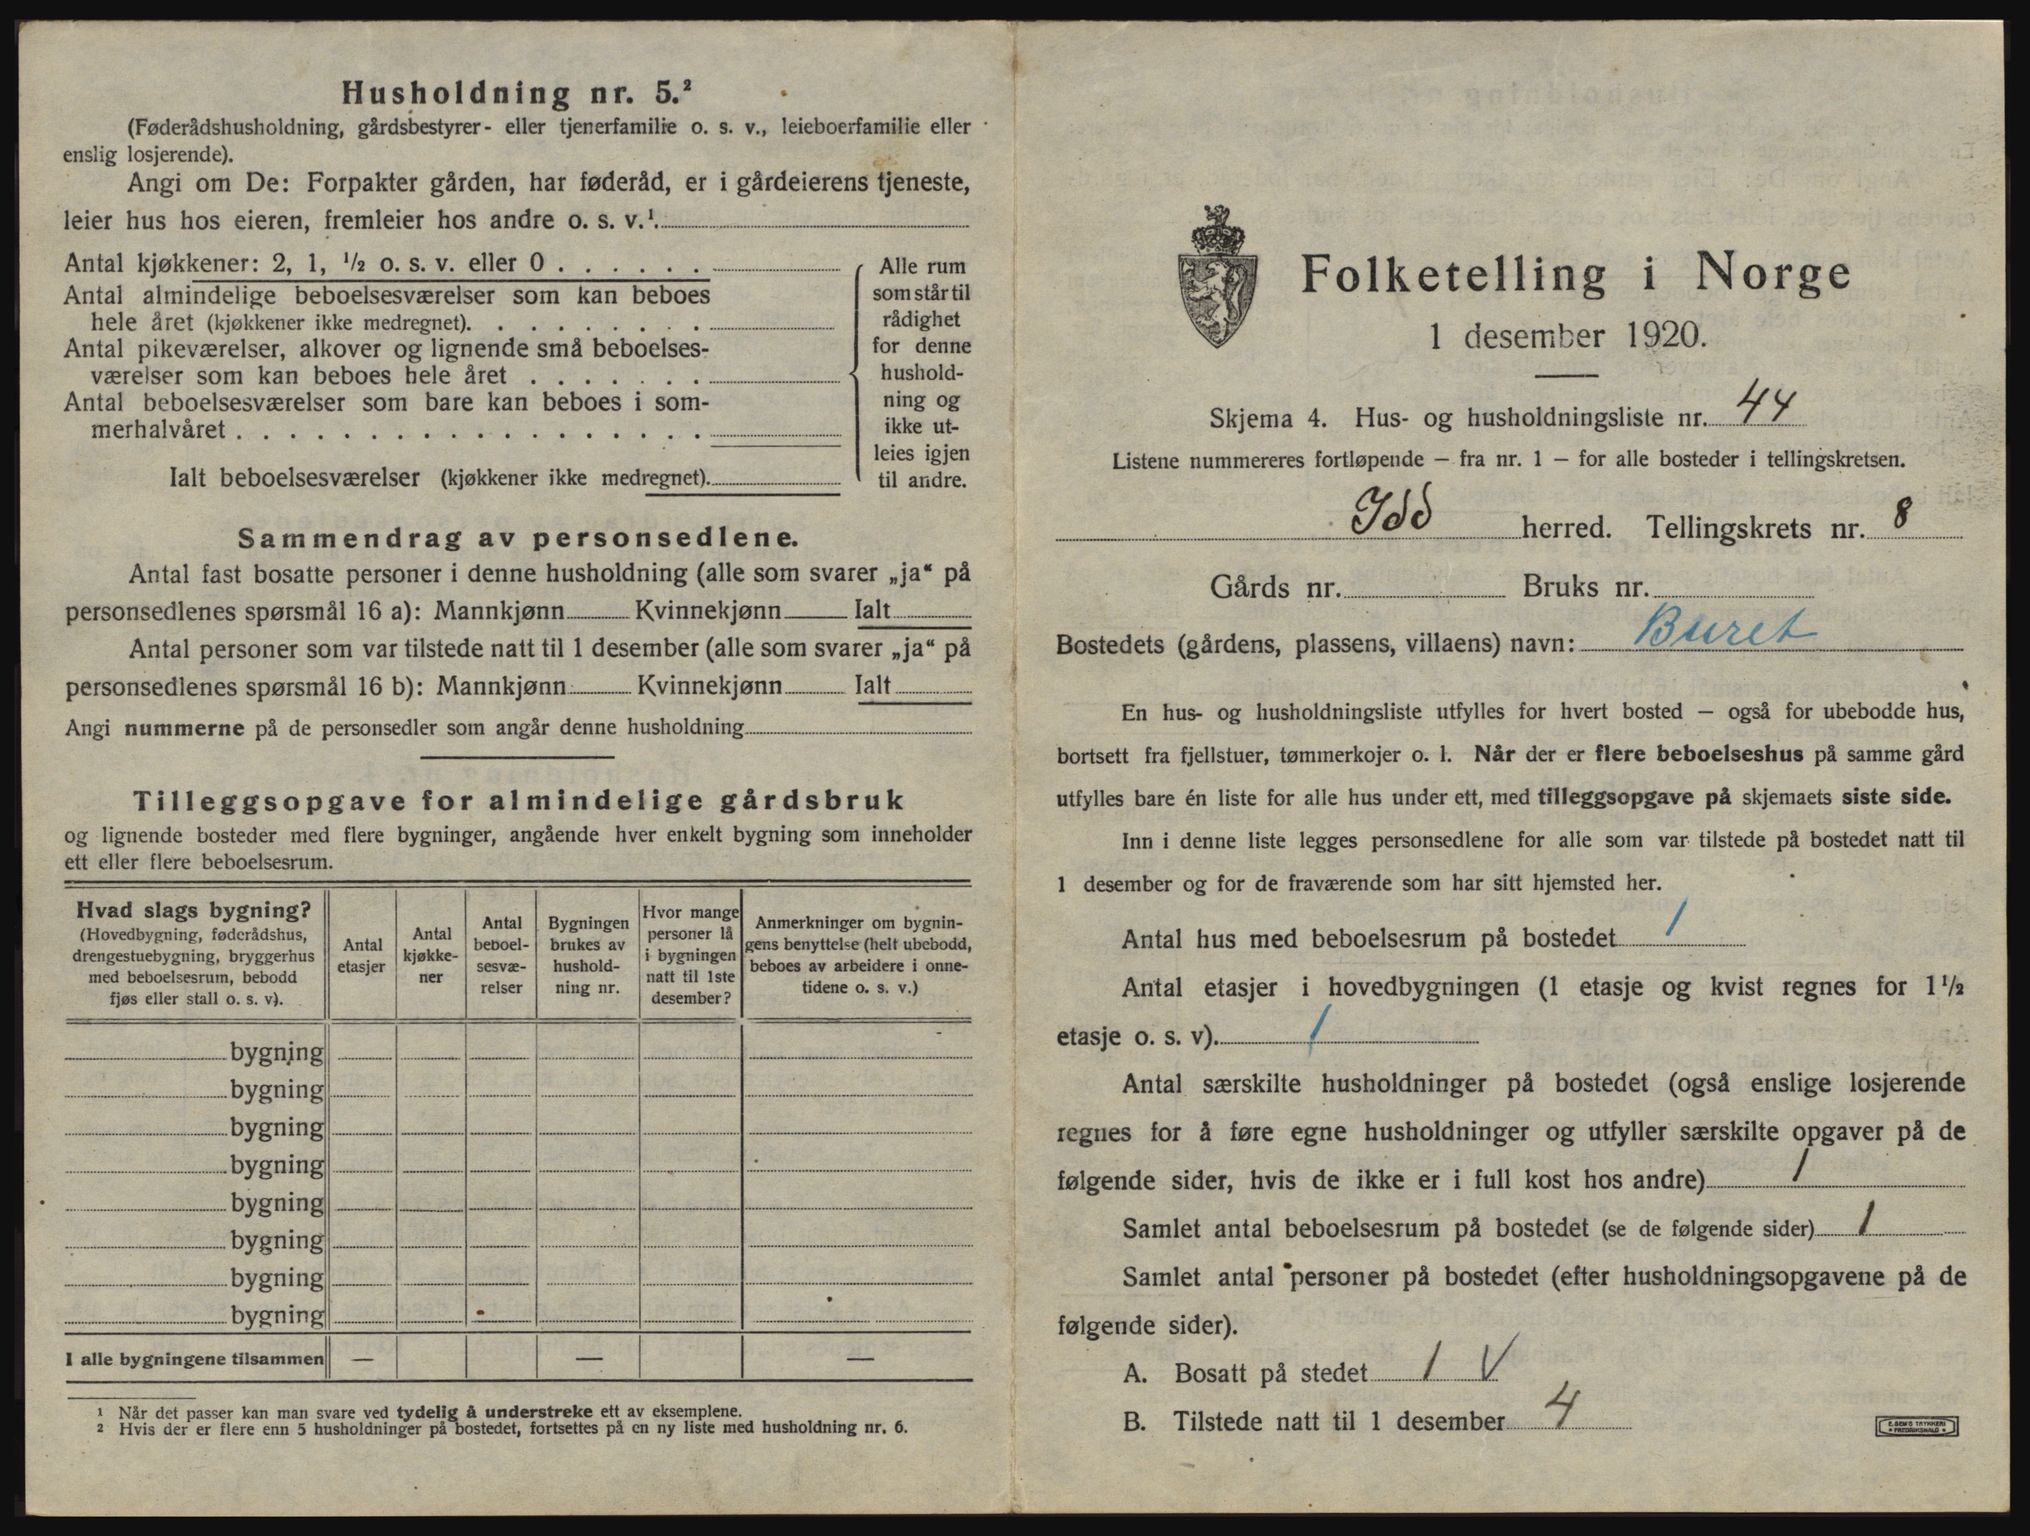 Husholdning nr. 5.²
(Føderådshusholdning, gårdsbestyrer- eller tjenerfamilie o. s. v., leieboerfamilie eller
enslig losjerende).
Angi om De: Forpakter gården, har føderåd, er i gårdeierens tjeneste,
leier hus hos eieren, fremleier hos andre o. s. v.¹
Antal kjøkkener: 2, 1, ½ o. s. v. eller 0 . . . . . .
Antal almindelige beboelsesværelser som kan beboes
hele året (kjøkkener ikke medregnet). . . . . . . . .
Antal pikeværelser, alkover og lignende små beboelses-
værelser som kan beboes hele året . . . . . . .
Antal beboelsesværelser som bare kan beboes i som-
merhalvåret . . . . . . . . . . . . . . . . . .
Ialt beboelsesværelser (kjøkkener ikke medregnet).
Alle rum
som står til
rådighet
for denne
hushold-
ning og
ikke ut-
leies igjen
til andre.
Sammendrag av personsedlene.
Antal fast bosatte personer i denne husholdning (alle som svarer „ja“ på
personsedlenes spørsmål 16 a): Mannkjønn Kvinnekjønn Ialt
Antal personer som var tilstede natt til 1 desember (alle som svarer „ja“ på
personsedlenes spørsmål 16 b): Mannkjønn Kvinnekjønn Ialt
Angi nummerne på de personsedler som angår denne husholdning
Tilleggsopgave for almindelige gårdsbruk
og lignende bosteder med flere bygninger, angående hver enkelt bygning som inneholder
ett eller flere beboelsesrum.
Hvad slags bygning?
(Hovedbygning, føderådshus,
drengestuebygning, bryggerhus
med beboelsesrum, bebodd
fjøs eller stall o. s. v).
Antal
etasjer
Antal
kjøkke-
ner
Antal
beboel-
sesvæ-
relser
Bygningen
brukes av
hushold-
ning nr.
Hvor mange
personer lå
i bygningen
natt til 1ste
desember?
Anmerkninger om bygnin-
gens benyttelse (helt ubebodd,
beboes av arbeidere i onne-
tidene o. s. v.)
bygning
bygning
bygning
bygning
bygning
bygning
bygning
bygning
I alle bygningene tilsammen — — —
¹ Når det passer kan man svare ved tydelig å understreke ett av eksemplene.
² Hvis der er flere enn 5 husholdninger på bostedet, fortsettes på en ny liste med husholdning nr. 6.
Folketelling i Norge
1 desember 1920.
Skjema 4. Hus- og husholdningsliste nr. 44
Listene nummereres fortløpende — fra nr. 1 — for alle bosteder i tellingskretsen.
Idd herred. Tellingskrets nr. 8
Gårds nr. Bruks nr.
Bostedets (gårdens, plassens, villaens) navn: Buret
En hus- og husholdningsliste utfylles for hvert bosted — også for ubebodde hus,
bortsett fra fjellstuer, tømmerkojer o. l. Når der er flere beboelseshus på samme gård
utfylles bare én liste for alle hus under ett, med tilleggsopgave på skjemaets siste side.
Inn i denne liste legges personsedlene for alle som var tilstede på bostedet natt til
1 desember og for de fraværende som har sitt hjemsted her.
Antal hus med beboelsesrum på bostedet 1
Antal etasjer i hovedbygningen (1 etasje og kvist regnes for 1½
etasje o. s. v). 1
Antal særskilte husholdninger på bostedet (også enslige losjerende
regnes for å føre egne husholdninger og utfyller særskilte opgaver på de
følgende sider, hvis de ikke er i full kost hos andre) 1
Samlet antal beboelsesrum på bostedet (se de følgende sider) 1
Samlet antal personer på bostedet (efter husholdningsopgavene på de
følgende sider).
A. Bosatt på stedet 1 V
B. Tilstede natt til 1 desember 4
E. SEM'S TRYKKERI
FREDRIKSHALD